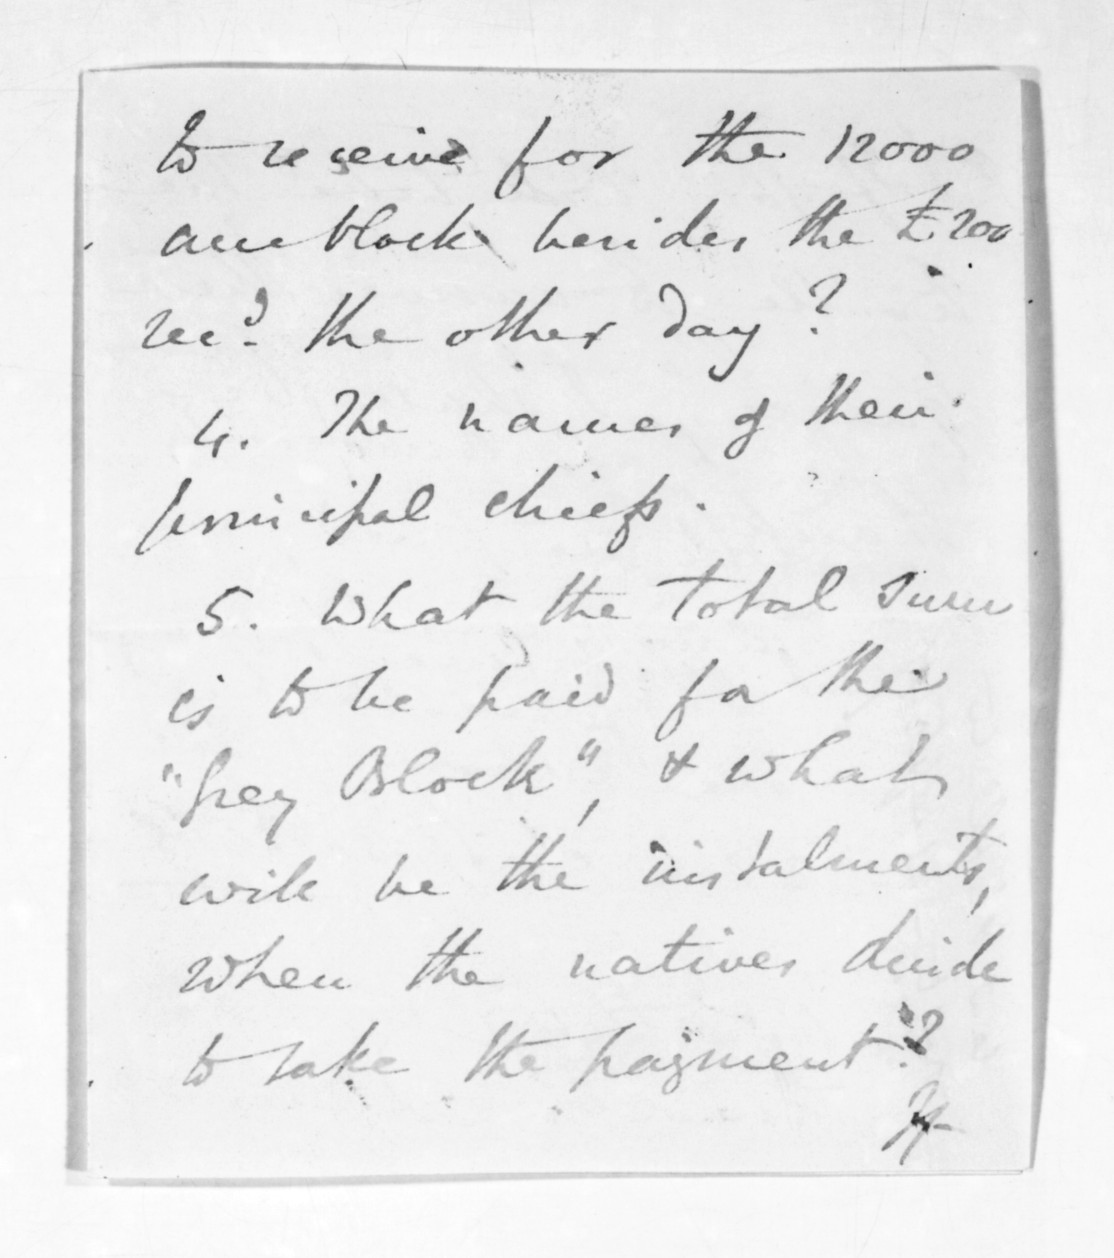 to receive for the 12000
acre block besides the £200
recd. the other day?
4. The names of their
principal chiefs.
5. What the total sum
is to be paid for the
"Grey Block", & what
will be the instalments,
when the natives decide
to take the payment?